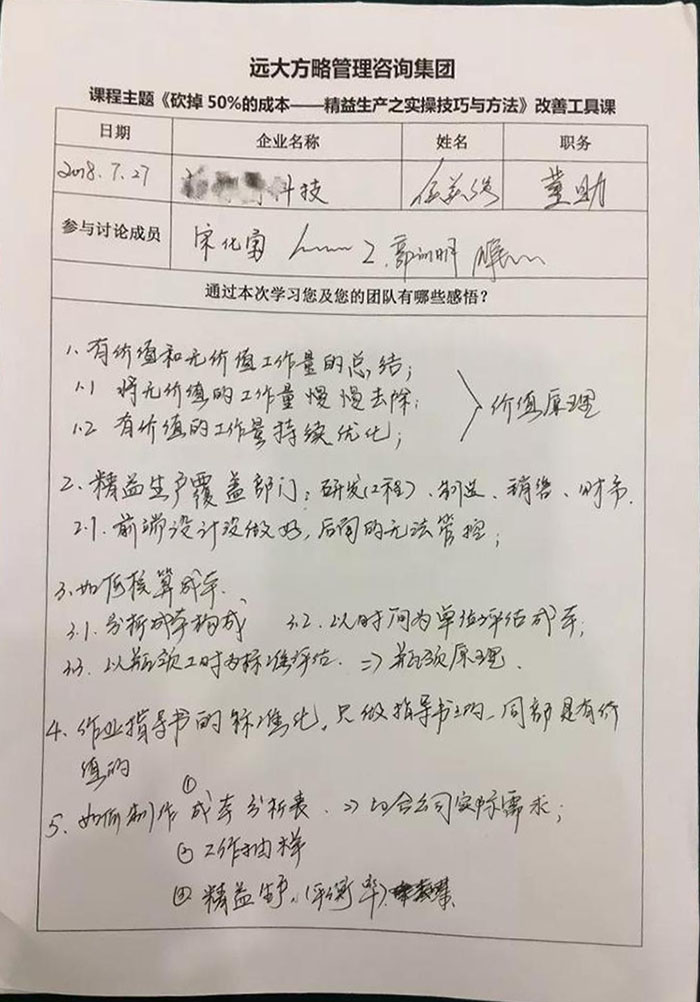 远大方略管理咨询集团
课程主题《砍掉50%的成本——精益生产之实操技巧与方法》改善工具课
日期 企业名称 姓名 职务
2018.7.27 科技 董助
参与讨论成员 宋化富
通过本次学习您及您的团队有哪些感悟？
1、有价值和无价值工作量的总结；
1.1 将无价值的工作量慢慢去除；
价值原理
1.2 有价值的工作量持续优化；
2、精益生产覆盖部门：研发(工程)、制造、销售、财务.
2.1. 前端设计没做好，后面的无法管控；
3、如何核算成本.
3.1. 分析成本构成 3.2. 以时间为单位评估成本；
3.3. 以瓶颈工时为标准评估. => 瓶颈原理.
4、作业指导书的标准化，只做指导书上的
是有价
值的
5、如何制作 ① 成本分析表. => 公司实际需求；
② 工作抽样
③ 精益生产.(平衡率)